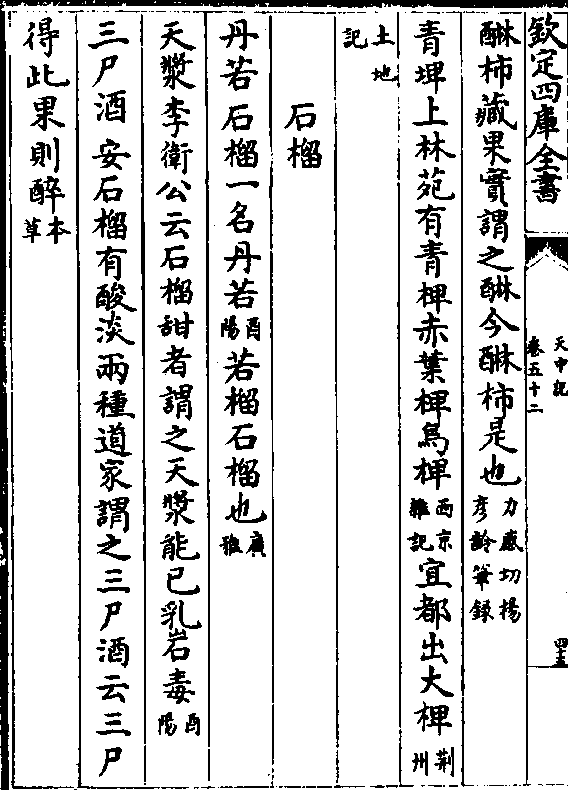 欽定四庫全書
天中記
卷五十二
四五
醂柿藏果實謂之醂今醂柿是也力感切楊彥齡筆録
青椑上林苑有青椑赤葉椑烏椑西京雜記宜都出大椑荆州
土地記
石榴
丹若石榴一名丹若酉陽若榴石榴也廣雅
天漿李衛公云石榴甜者謂之天漿能已乳石毒酉陽
三尸酒安石榴有酸淡兩種道家謂之三尸酒云三尸
得此果則醉本草